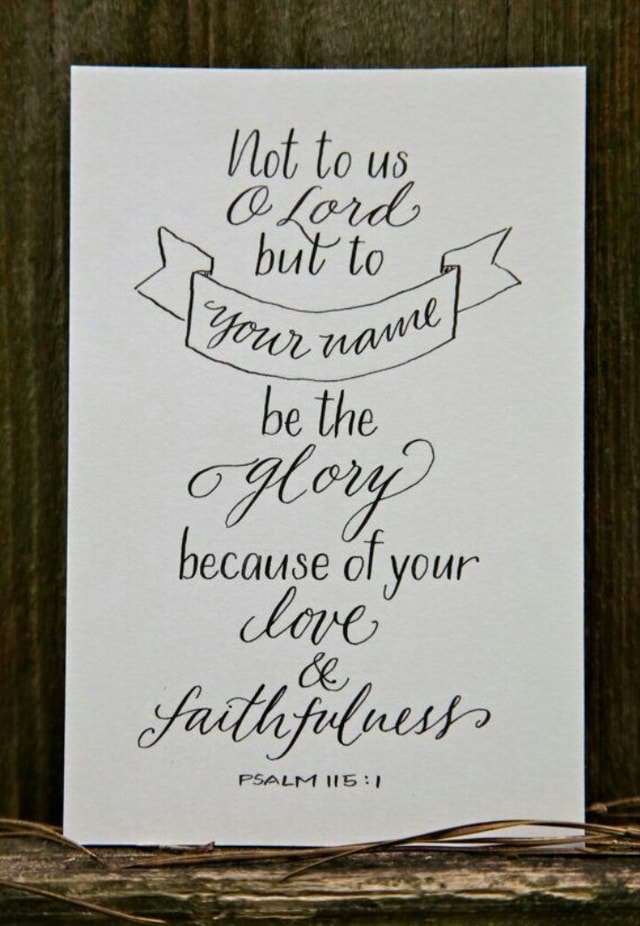 Not to us
O Lord
but to
your name
be the
glory
because of your
love
&
faithfulness
PSALM 115:1